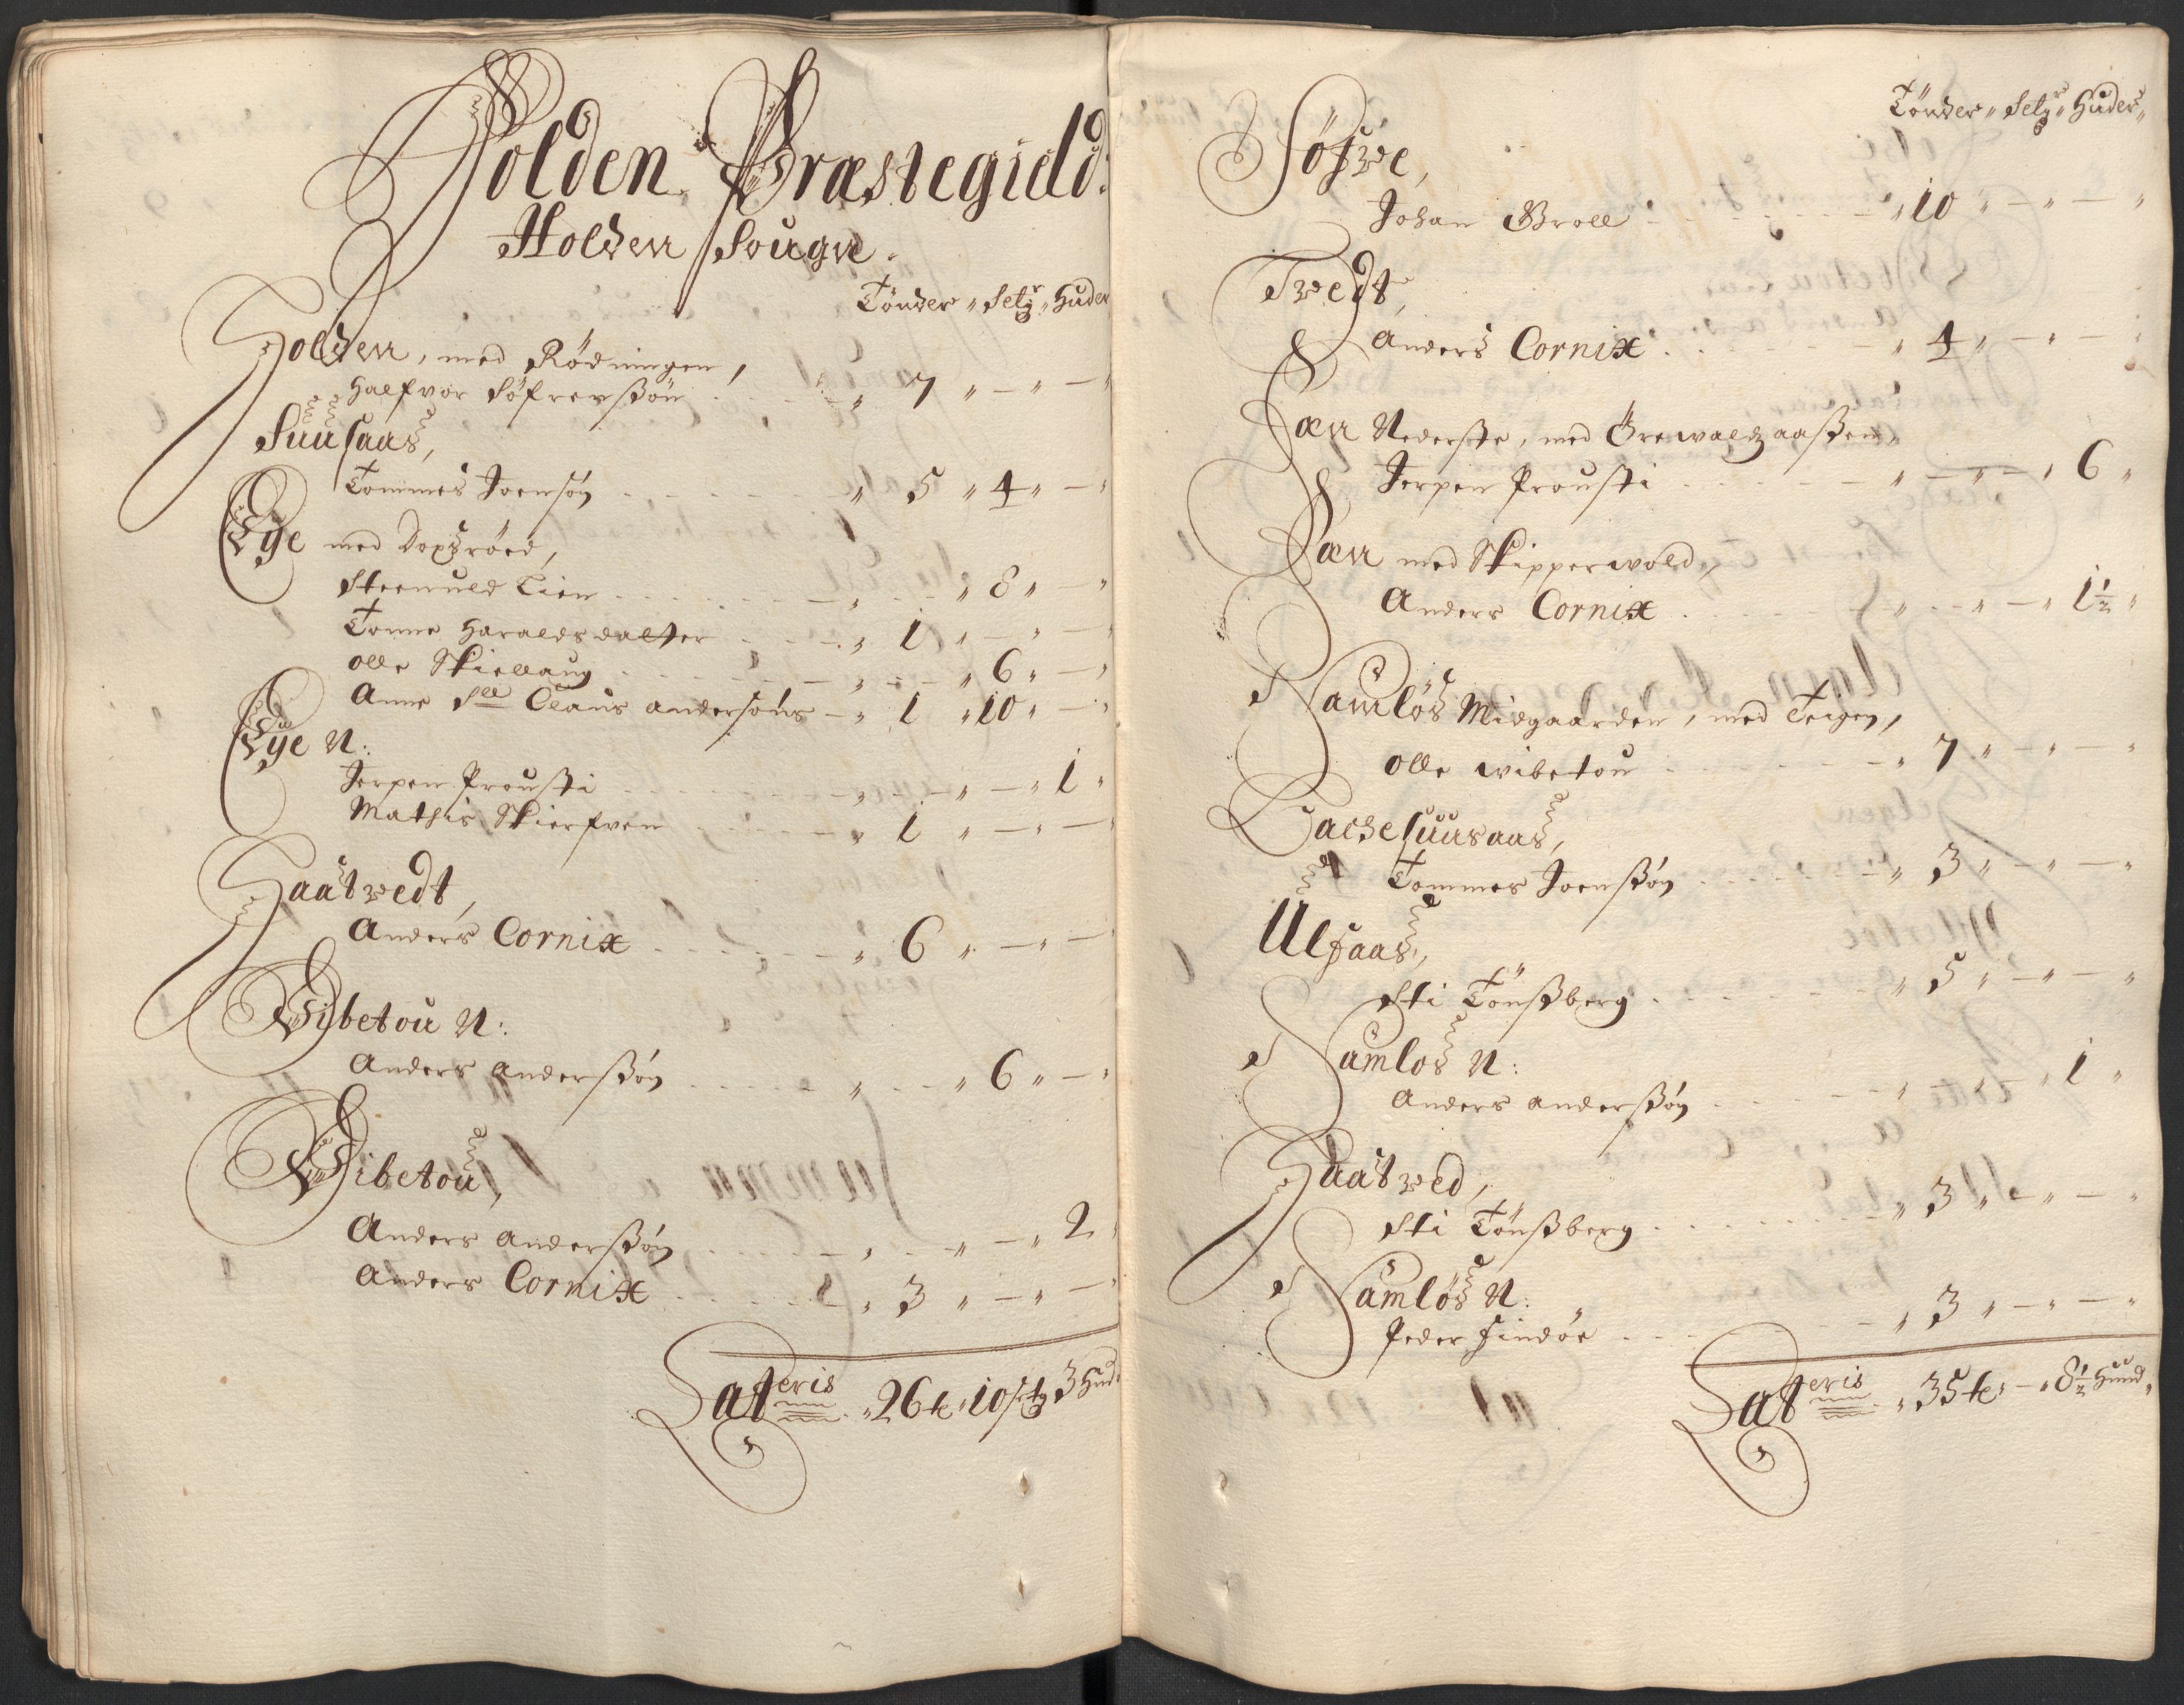 Holden Præstegield.
Holden Sougn.
Tönder " Setzr " Huder
Holden, med Rödningen,
Halfvor Söfrensßön " 7 " – " –
Suusaas,
Tommes Joensøn " 5 " 4 " –
Eye med Dopsröed,
Steenuld Lien " – " 8 " –
Tonne Haralds dalter " 1 " – " –
Olle Skiellaug " – " 6 " –
Anne Sll Claus Andersøns " 1 " 10 " –
Eye N:
Jerpen Prousti " – " – " 1
Mathis Skierfven " 1 " – " –
Haatvedt,
Anders Cornix " 6 " – " –
Wibetou N:
Anders Anderßøn " – " 6 " –
Wibetou,
Anders Anderßøn " – " – " 2
Anders Cornix " 3 " – " –
Lateris " 26 te " 10 setz 3 Hud
Tönder " Setzr " Huder "
Söfve,
Johan Broll " 10 " – " – "
Tvedt,
Anders Cornix " 4 " – " –
Fæn Nederste, med Örewaldzaaßen,
Jerpen Prousti " – " – " 6 "
Fæn med Skipperwold,
Anders Cornix " – " – " 1½ "
Namlös Midgaarden, med Teigen,
Olle Wibetou " 7 " – " – "
Bachesuusaas,
Tommes Joenßøn " 3 " – " – "
Ulsaas,
Sti Tönßberg " 5 " – " – "
Namlos N:
Anders Anderßøn " – " – " 1 "
Haatved,
Sti Tönßberg " 3 " – " – "
Namlös N:
Peder Findöe " 3 " – " – "
Lateris " 35 te " – " 8½ Huud "